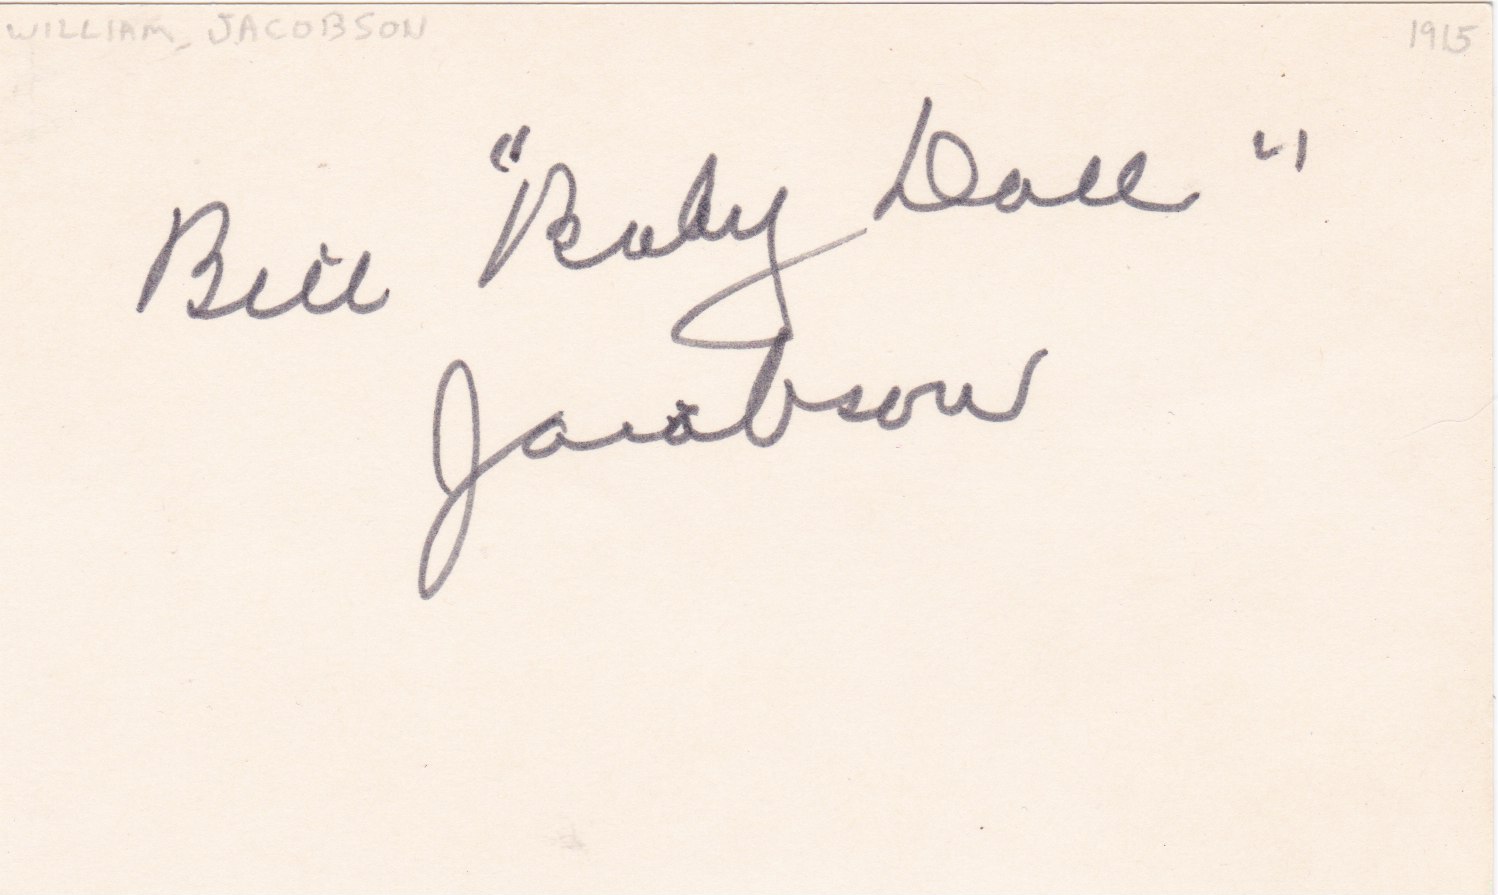 WILLIAM JACOBSON 1915
Bill "Baby Doll"
Jacobson